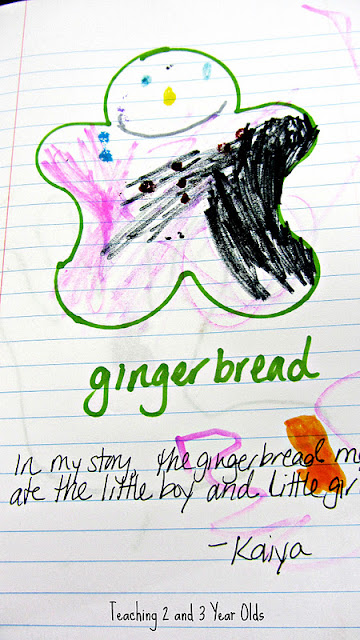 gingerbread
In my story, the gingerbread m
ate the little boy and little gir
-Kaiya
Teaching 2 and 3 Year Olds